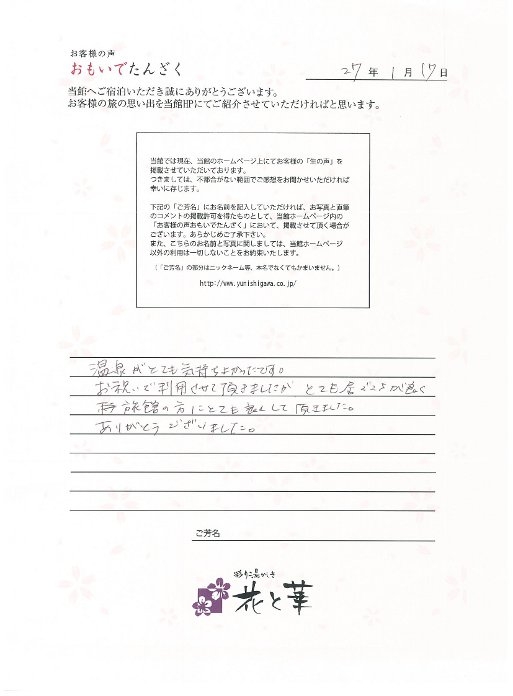 お客様の声
おもいでたんざく
27年1月17日
当館へご宿泊いただき誠にありがとうございます。
お客様の旅の思い出を当館HPにてご紹介させていただければと思います。
当館では現在、当館のホームページ上にてお客様の「生の声」を
掲載させていただいております。
つきましては、不都合がない範囲でご感想をお聞かせいただければ
幸いに存じます。
下記の「ご芳名」にお名前を記入していただければ、お写真と直筆
のコメントの掲載許可を得たものとして、当館ホームページ内の
「お客様の声おもいでたんざく」において、掲載させて頂く場合が
ございます。あらかじめご了承下さい。
また、こちらのお名前と写真に関しましては、当館ホームページ
以外の利用は一切しないことをお約束いたします。
(「ご芳名」の部分はニックネーム等、本名でなくてもかまいません。)
http://www.yunishigawa.co.jp/
温泉がとても気持ちよかったです。
お祝いで利用させて頂きましたが とても居ごこちが良く
旅館の方にとても親しくして頂きました。
ありがとうございました。
ご芳名
花と華